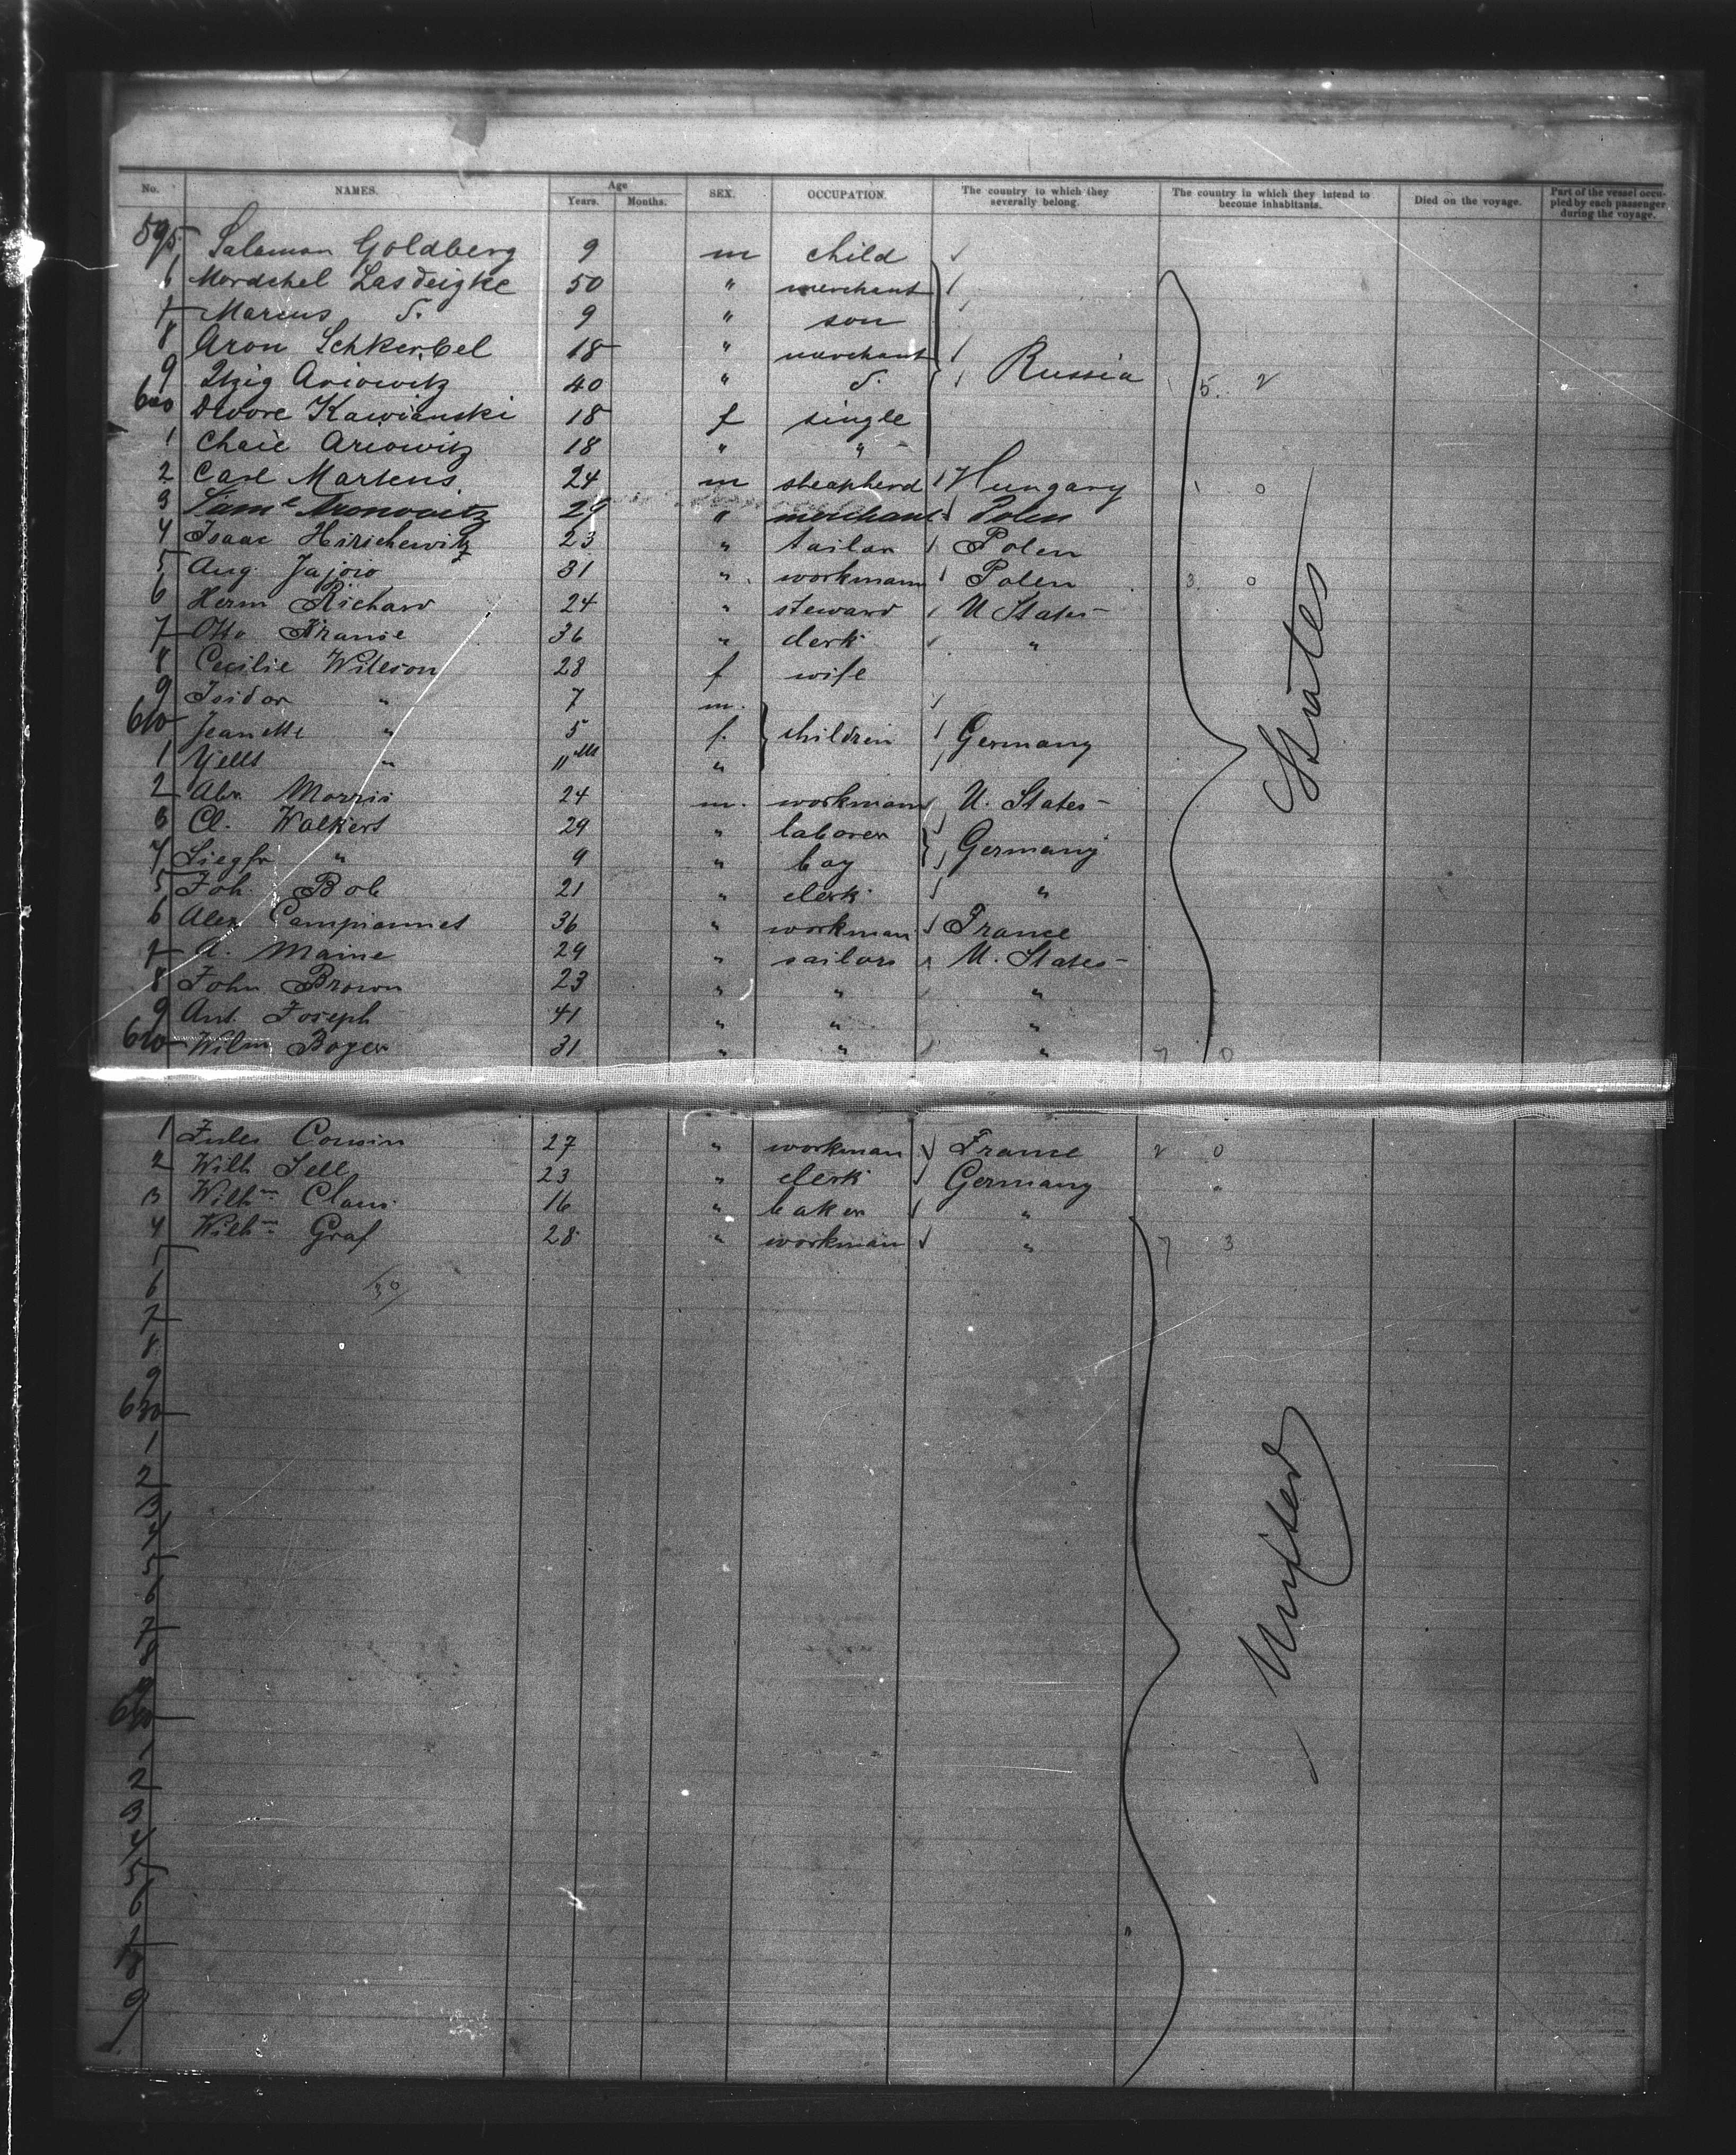 No. NAMES. Age Years. Months. SEX. OCCUPATION. The country to which they severally belong. The country in which they intend to become inhabitants. Died on the voyage. Part of the vessel occupied by each passenger during the voyage.
595 Salaman Goldberg 9 m child
6 Mordchel Lasdeigke 50 " merchant
7 Marcus d. 9 " son
8 Aron Schkerbel 18 " merchant
9 Itzig Ariowitz 40 " d. Russia 5. 2
600 Dwore Kawianski 18 f single
1 Chaie Ariowitz 18 " "
2 Carl Martens 24 m sheapherd Hungary 1 0
3 Saml Aronowitz 29 " merchant Polen
4 Isaac Hirschewitz 23 " tailor Polen
5 Aug. Jajow 31 " workmann Polen 3 0
6 Herm Richard 24 " steward U States
7 Otto Franse 36 " clerk "
8 Cecilie Wileson 28 f wife
9 Isidor " 7 m.
610 Jeanette " 5 f. children Germany
1 Yells " 11 M "
2 Abr. Morris 24 m. workmann U. States
3 Cl. Walkert 29 " laborer Germany
4 Siegfr " 9 " boy
5 Joh. Bob 21 " clerk "
6 Alex Campiannes 36 " workman France
7 A. Maine 29 " sailors U. States
8 John Brown 23 " " "
9 Ant. Joseph 41 " " "
620 Wilm Boyer 31 " " " 7 0
1 Jules Cousin 27 " workman France 2 0
2 Wilh Sell 23 " clerk Germany "
3 Wilhm Claus 16 " baker "
4 Wilhm Graf 28 " workman " 7 3
5
6 30
7
8
9
630
1
2
3
4
5
6
7
8
9
640
1
2
3
4
5
6
7
8
9
United States